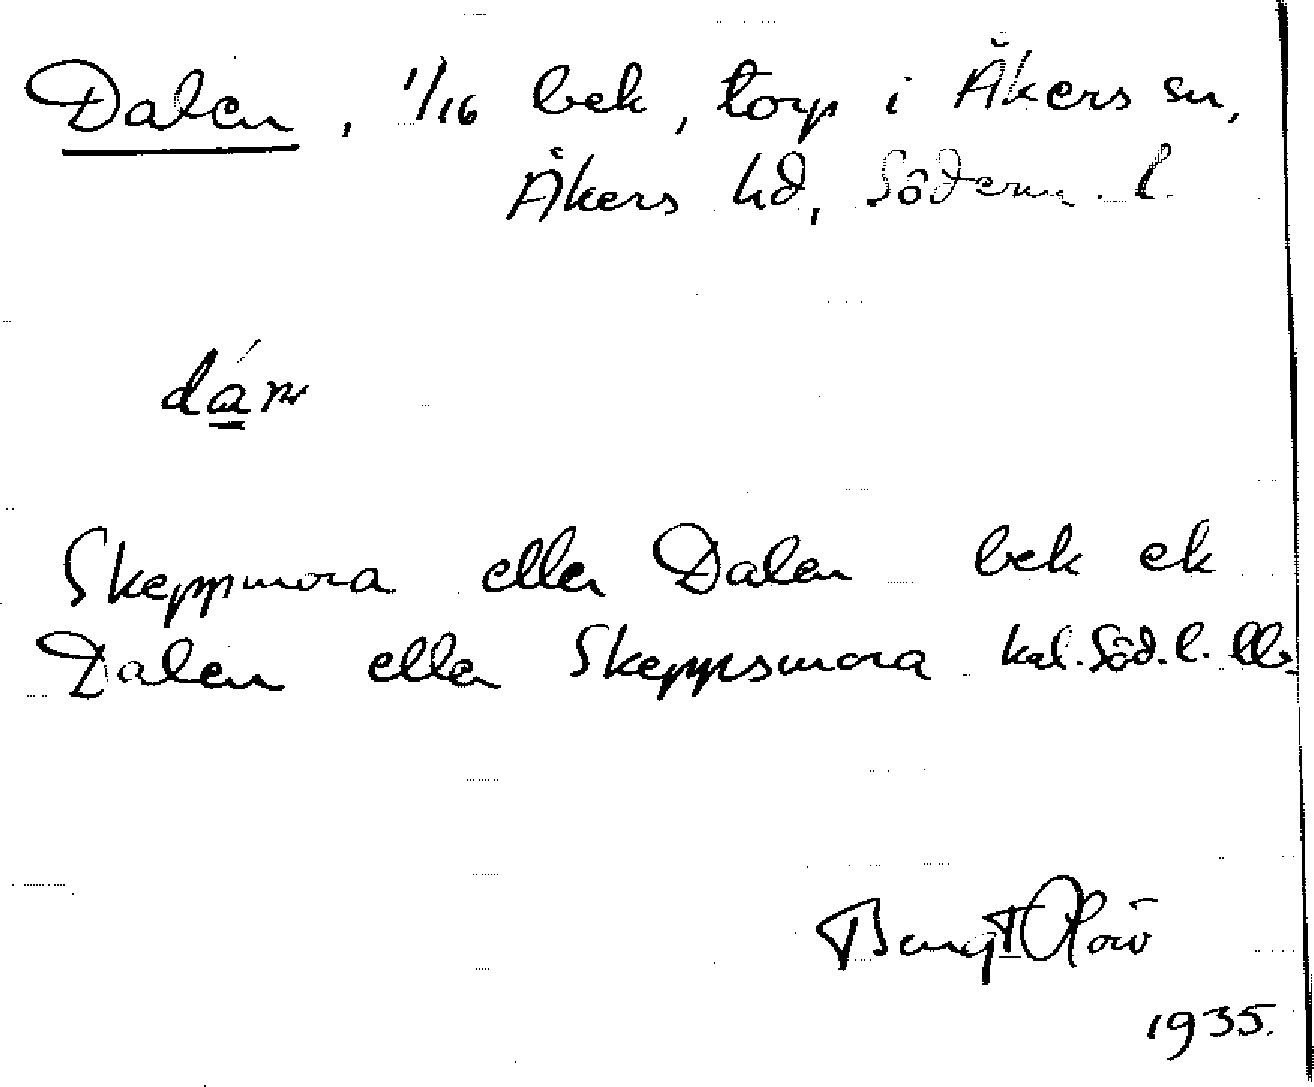 Dalen, 1/16 bek, torp i Åkers sn,
Åkers hd, Söderm. l.
Skeppmora eller Dalen bek ek
Dalen eller Skeppsmora kal. Söd. l.
Bengt
1935.